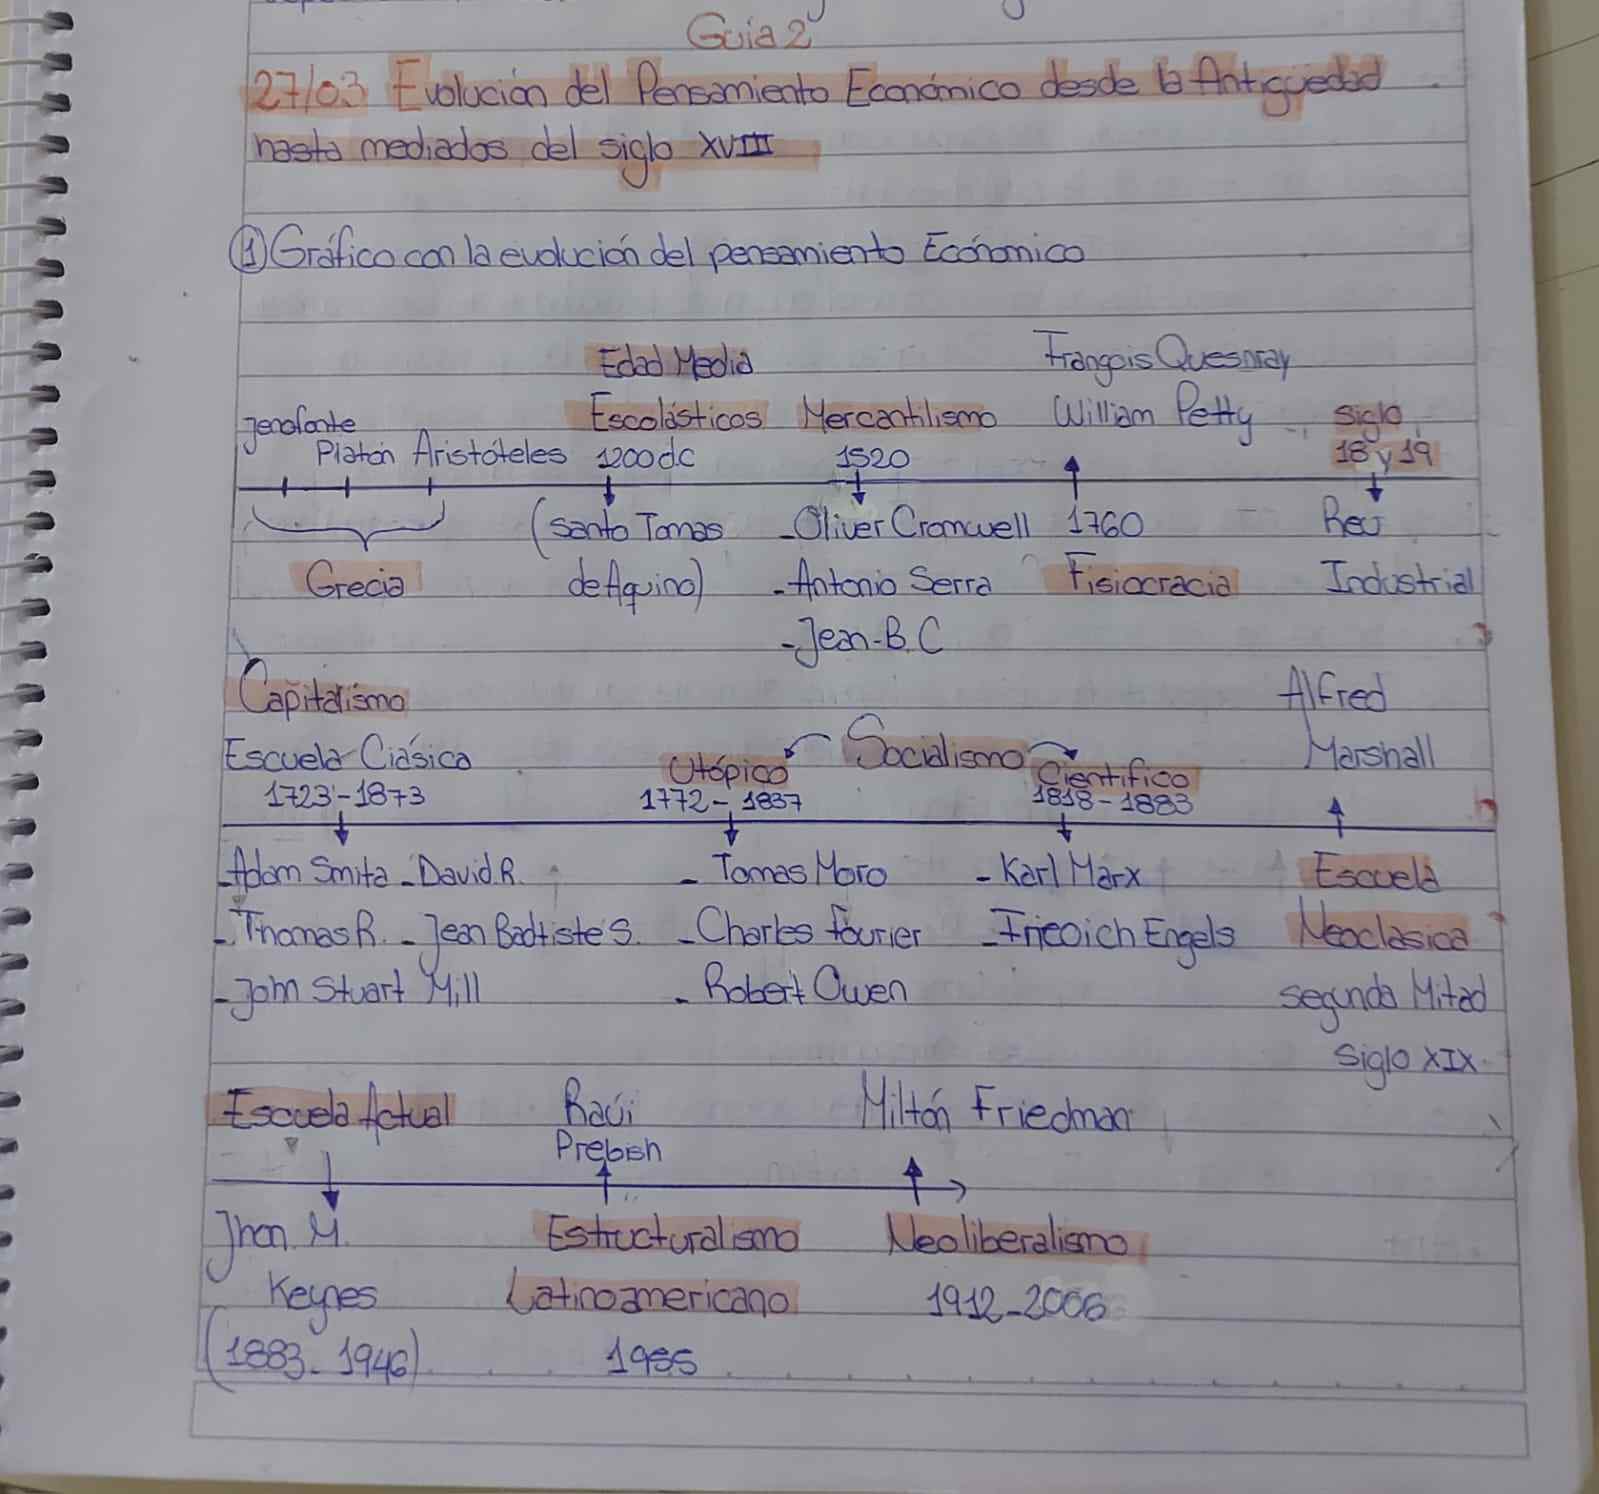 Guia 2
27/03 Evolución del Pensamiento Económico desde la Antigüedad
hasta mediados del siglo XVIII
① Gráfico con la evolución del pensamiento Económico
Edad Media
François Quesnay
Jenofonte
Escolásticos Mercantilismo William Petty siglo
Platón Aristóteles 1200 d.C 1520 18 y 19
(santo Tomas - Oliver Cromwell 1760 Rev
Grecia de Aquino) - Antonio Serra Fisiocracia Industrial
- Jean-B.C
Capitalismo Alfred
Escuela Clásica Utópico Socialismo Cientifico Marshall
1723-1873 1772-1837 1818-1883
- Adam Smita - David R. - Tomas Moro - Karl Marx Escuela
- Thomas R. - Jean Badtiste S. - Charles Fourier - Fricoich Engels Neoclasica
- John Stuart Mill - Robert Owen segunda Mitad
Siglo XIX.
Escuela Actual Raúl Miltón Friedman
Prebish
Jhon. M. Estructuralismo Neoliberalismo
Keynes Latinoamericano 1912-2006
(1883-1946)